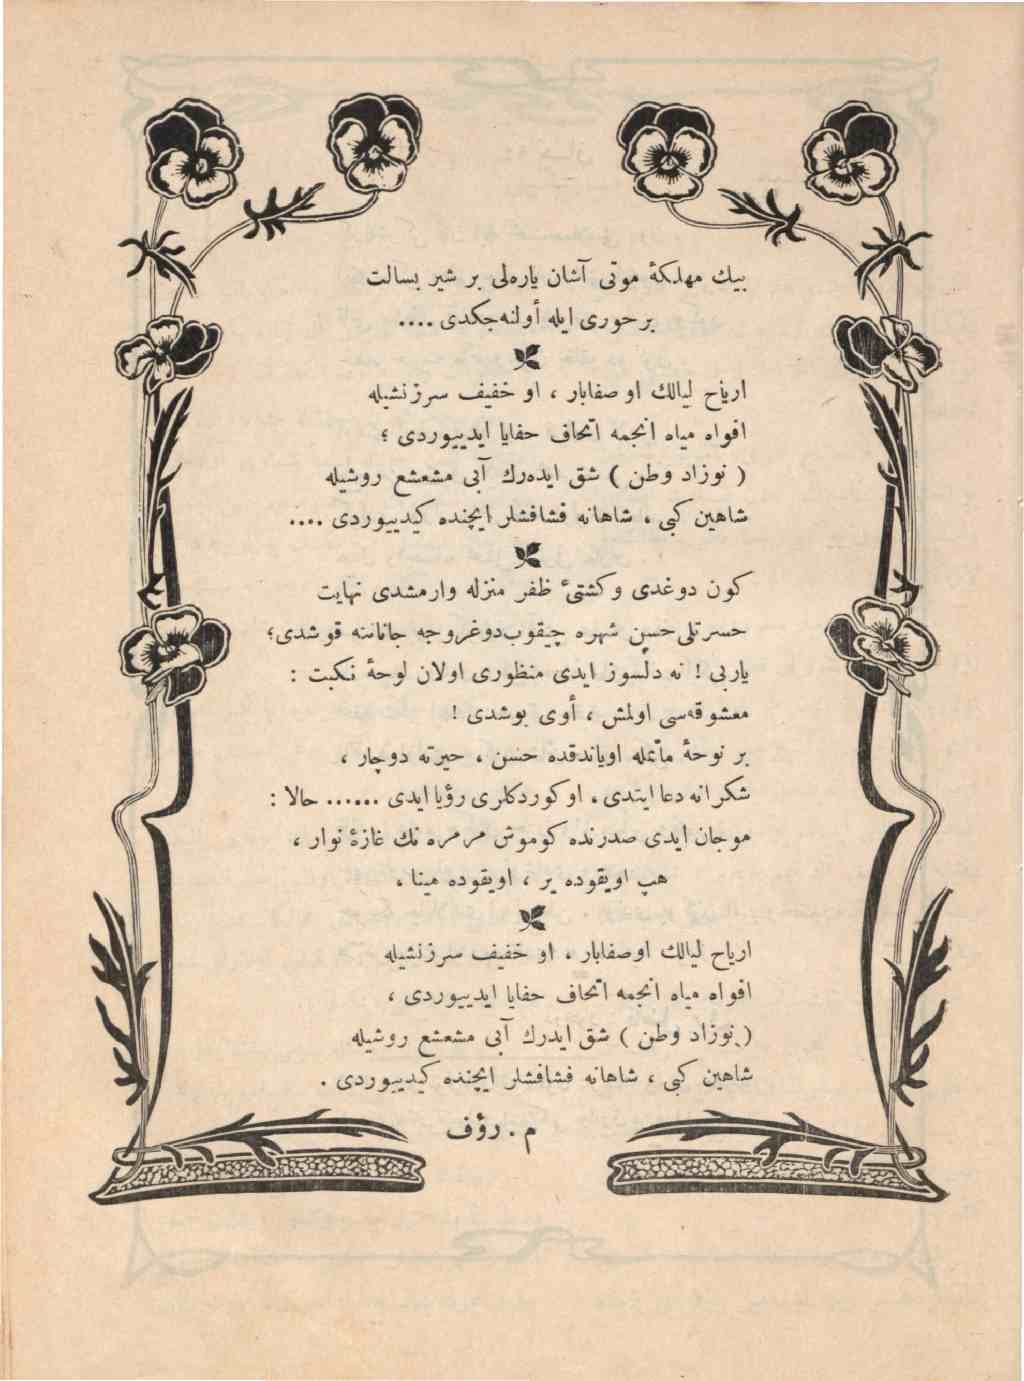 بيك مهلكۀ موتى آشان ياره‌لى بر شير بسالت
بر حورى ايله أولنه‌جكدى ....
ارياح ليالك او صفابار ، او خفيف سرزنشيله
افواه مياه انجمه اتحاف حفايا ايدييوردى ؛
( نوزاد وطن ) شق ايده‌رك آبى مشعشع روشيله
شاهين كبى ، شاهانه فشافشلر ايچنده كيدييوردى ....
كون دوغدى و كشتئ ظفر منزله وارمشدى نهايت
حسرتلى حسن شهره چيقوب دوغروجه جاناننه قوشدى ؛
ياربى ! نه دلسوز ايدى منظورى اولان لوحۀ نكبت :
معشوقه‌سى اولمش ، أوى بوشدى !
بر نوحۀ مأتمله اوياندقده حسن ، حيرته دوچار ،
شكرانه دعا ايتدى . او كوردكلرى رؤيا ايدى ...... حالا :
موجان ايدى صدرنده كوموش مرمره نك غازۀ نوار ،
هپ اويقوده ير ، اويقوده مينا .
ارياح ليالك اوصفابار ، او خفيف سرزنشيله
افواه مياه انجمه اتحاف حفايا ايدييوردى ،
( نوزاد وطن ) شق ايدرك آبى مشعشع روشيله
شاهين كبى ، شاهانه فشافشلر ايچنده كيدييوردى .
م . رؤف